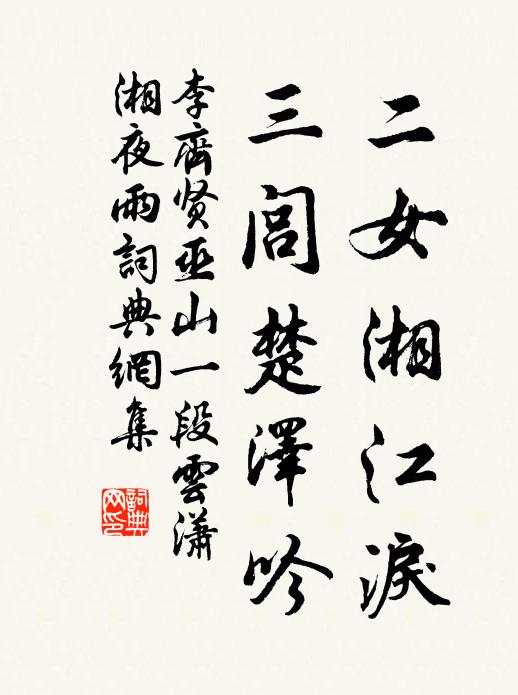 二女湘江淚
三閭楚澤吟
李齊贤巫山一段雲瀟
湘夜雨詞典網集
詞典
网印